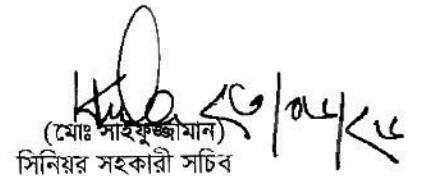 (মোঃ সাইফুজ্জামান)
সিনিয়র সহকারী সচিব